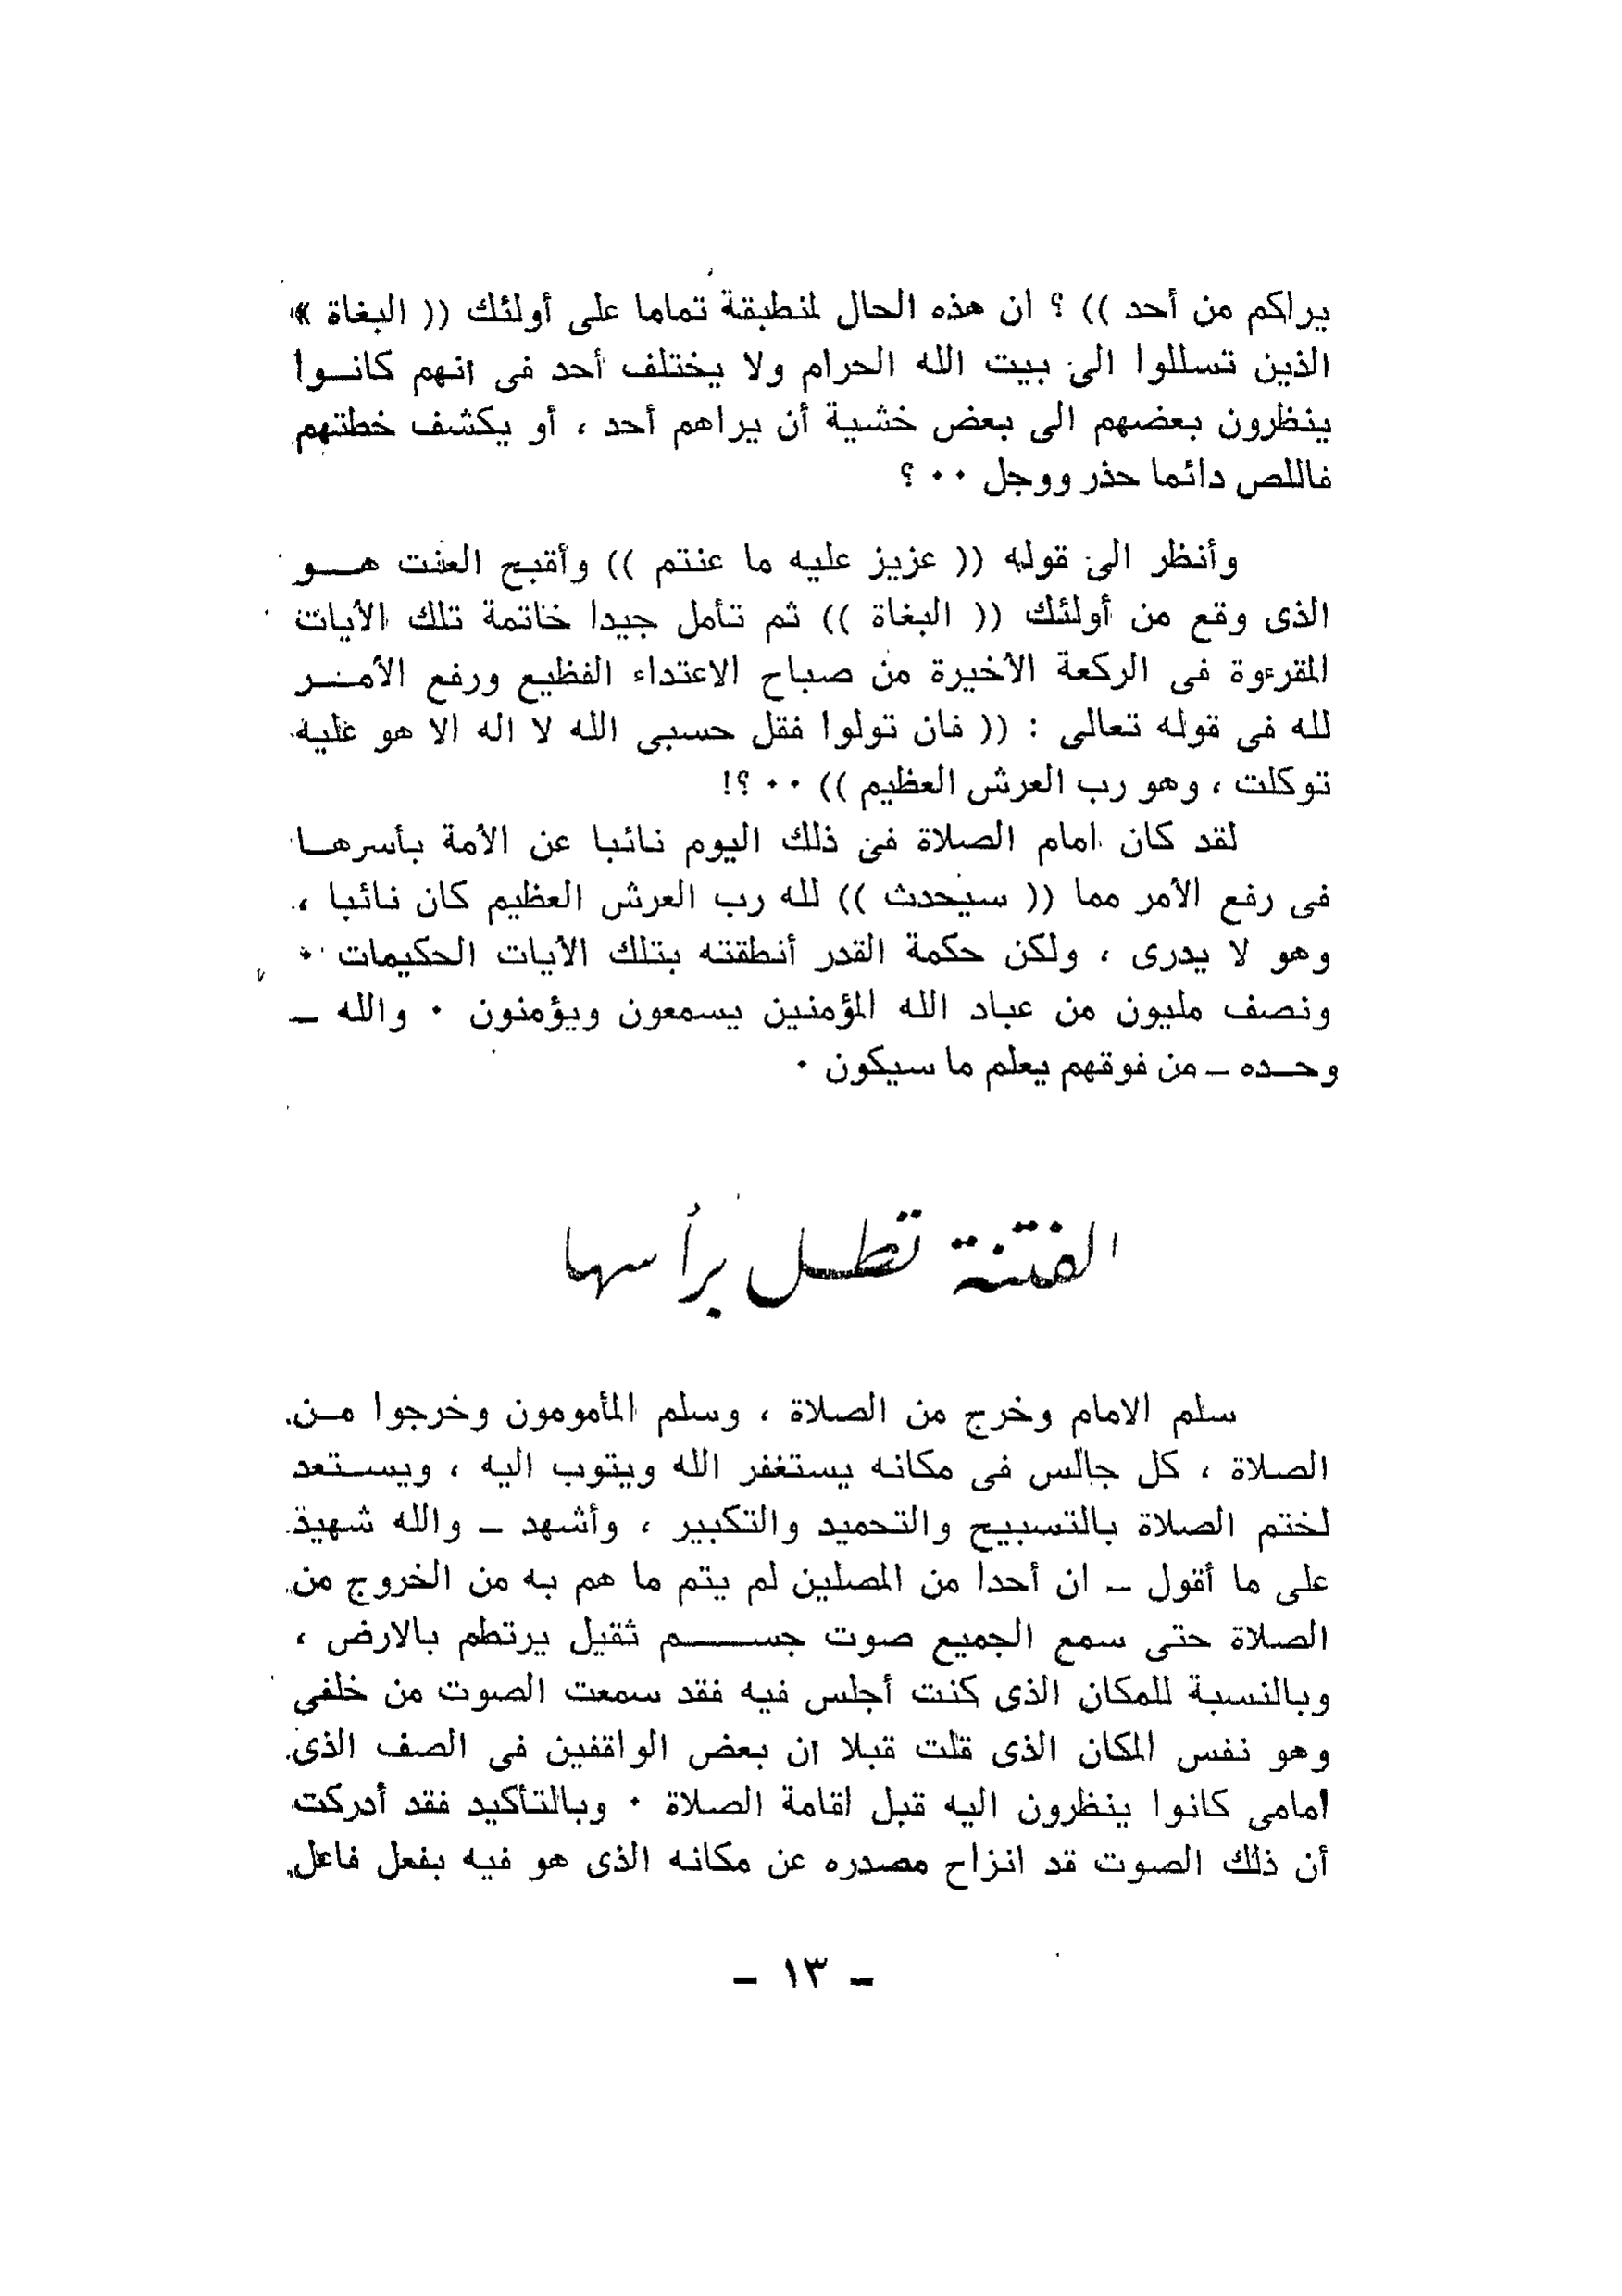 يراكم من أحد )) ؟ ان هذه الحال لمنطبقة تماما على أولئك (( البغاة ))
الذين تسللوا الى بيت الله الحرام ولا يختلف أحد فى انهم كانــوا
ينظرون بعضهم الى بعض خشية أن يراهم أحد ، أو يكشف خطتهم
فاللص دائما حذر ووجل ٠٠ ؟
وأنظر الى قوله (( عزيز عليه ما عنتم )) وأقبح العنت هـــو
الذى وقع من أولئك (( البغاة )) ثم تأمل جيدا خاتمة تلك الآيات
المقرءوة فى الركعة الأخيرة من صباح الاعتداء الفظيع ورفع الأمــر
لله فى قوله تعالى : (( فان تولوا فقل حسبى الله لا اله الا هو عليه
توكلت ، وهو رب العرش العظيم )) ٠٠ ؟!
لقد كان امام الصلاة فى ذلك اليوم نائبا عن الأمة بأسرهــا
فى رفع الأمر مما (( سيحدث )) لله رب العرش العظيم كان نائبا ،
وهو لا يدرى ، ولكن حكمة القدر أنطقته بتلك الآيات الحكيمات ٠
ونصف مليون من عباد الله المؤمنين يسمعون ويؤمنون ٠ والله ــ
وحــده ــ من فوقهم يعلم ما سيكون ٠
الفتنة تطل برأسها
سلم الامام وخرج من الصلاة ، وسلم المأمومون وخرجوا مــن
الصلاة ، كل جالس فى مكانه يستغفر الله ويتوب اليه ، ويســتعد
لختم الصلاة بالتسبيح والتحميد والتكبير ، وأشهد ــ والله شهيد
على ما أقول ــ ان أحدا من المصلين لم يتم ما هم به من الخروج من
الصلاة حتى سمع الجميع صوت جســــم ثقيل يرتطم بالارض ،
وبالنسبة للمكان الذى كنت أجلس فيه فقد سمعت الصوت من خلفى
وهو نفس المكان الذى قلت قبلا ان بعض الواقفين فى الصف الذى
أمامى كانوا ينظرون اليه قبل اقامة الصلاة ٠ وبالتأكيد فقد أدركت
أن ذلك الصوت قد انزاح مصدره عن مكانه الذى هو فيه بفعل فاعل
ــ ١٣ ــ